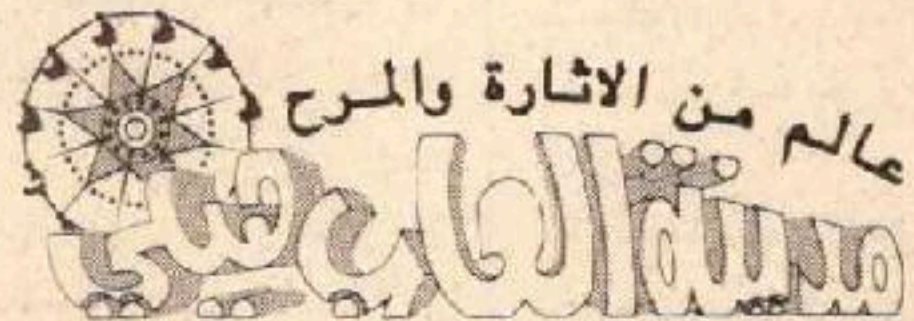 عالم من الاثارة والمرح
مدينة العاب هيلي